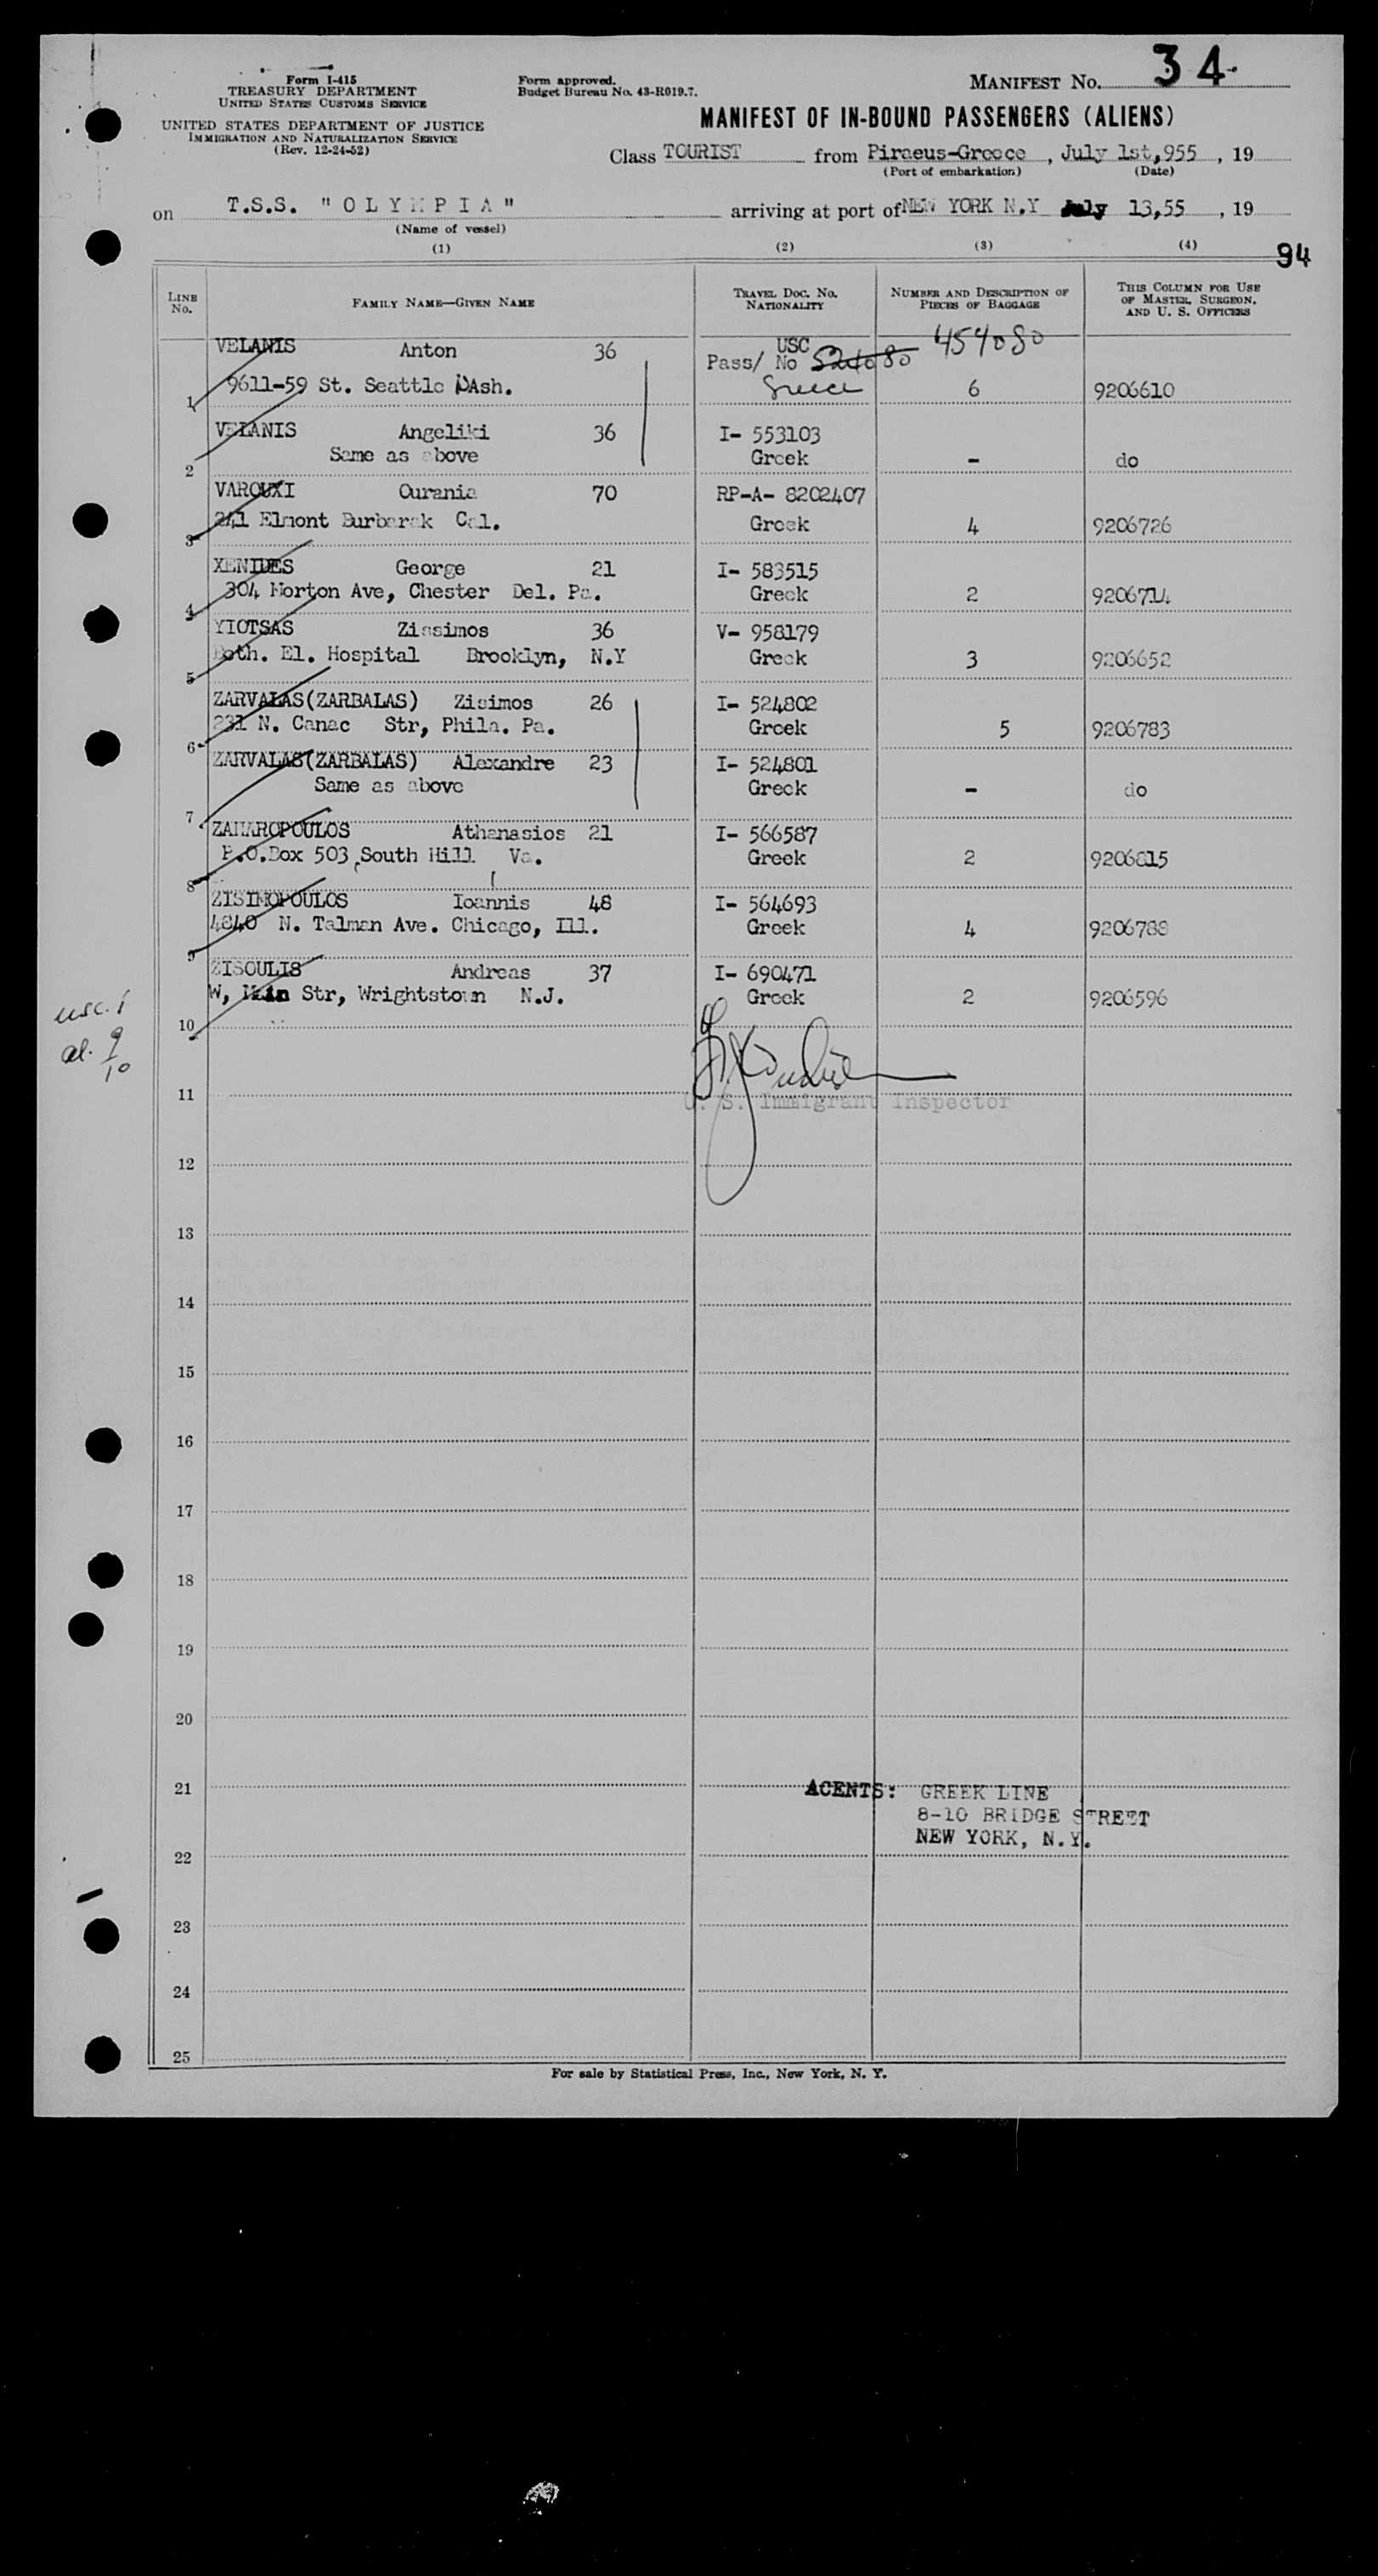 Form I-415
TREASURY DEPARTMENT
UNITED STATES CUSTOMS SERVICE
UNITED STATES DEPARTMENT OF JUSTICE
IMMIGRATION AND NATURALIZATION SERVICE
(Rev. 12-24-52)
Form approved.
Budget Bureau No. 43-R019.7.
MANIFEST NO. 34
MANIFEST OF IN-BOUND PASSENGERS (ALIENS)
Class TOURIST from Piraeus-Greece, July 1st,955, 19
(Port of embarkation) (Date)
on T.S.S. "OLYMPIA" arriving at port of NEW YORK N.Y July 13,55, 19
(Name of vessel)
(1) (2) (3) (4)
94
LINE No. FAMILY NAME—GIVEN NAME TRAVEL DOC. NO. NATIONALITY NUMBER AND DESCRIPTION OF PIECES OF BAGGAGE THIS COLUMN FOR USE OF MASTER, SURGEON, AND U. S. OFFICERS
VELANIS Anton 36 USC Pass/ No 524080 454080
1 9611-59 St. Seattle WAsh. Greece 6 9206610
VELANIS Angeliki 36 I- 553103
2 Same as above Greek - do
VAROUXI Ourania 70 RP-A- 8202407
3 241 Elmont Burbarak Cal. Greek 4 9206726
XENIDES George 21 I- 583515
4 304 Morton Ave, Chester Del. Pa. Greek 2 9206714
YIOTSAS Zissimos 36 V- 958179
5 Beth. El. Hospital Brooklyn, N.Y Greek 3 9206652
ZARVALAS(ZARBALAS) Zisimos 26 I- 524802
6 231 N. Canac Str, Phila. Pa. Greek 5 9206783
ZARVALAS(ZARBALAS) Alexandre 23 I- 524801
7 Same as above Greek - do
ZAHAROPOULOS Athanasios 21 I- 566587
8 P.O.Box 503, South Hill Va. Greek 2 9206815
ZISIMOPOULOS Ioannis 48 I- 564693
9 4840 N. Talman Ave. Chicago, Ill. Greek 4 9206788
ZISOULIS Andreas 37 I- 690471
10 W, Main Str, Wrightstown N.J. Greek 2 9206596
usc. 1
al. 9
10
11 U. S. Immigrant Inspector
12
13
14
15
16
17
18
19
20
21 AGENTS: GREEK LINE
8-10 BRIDGE STREET
NEW YORK, N.Y.
22
23
24
25
For sale by Statistical Press, Inc., New York, N. Y.